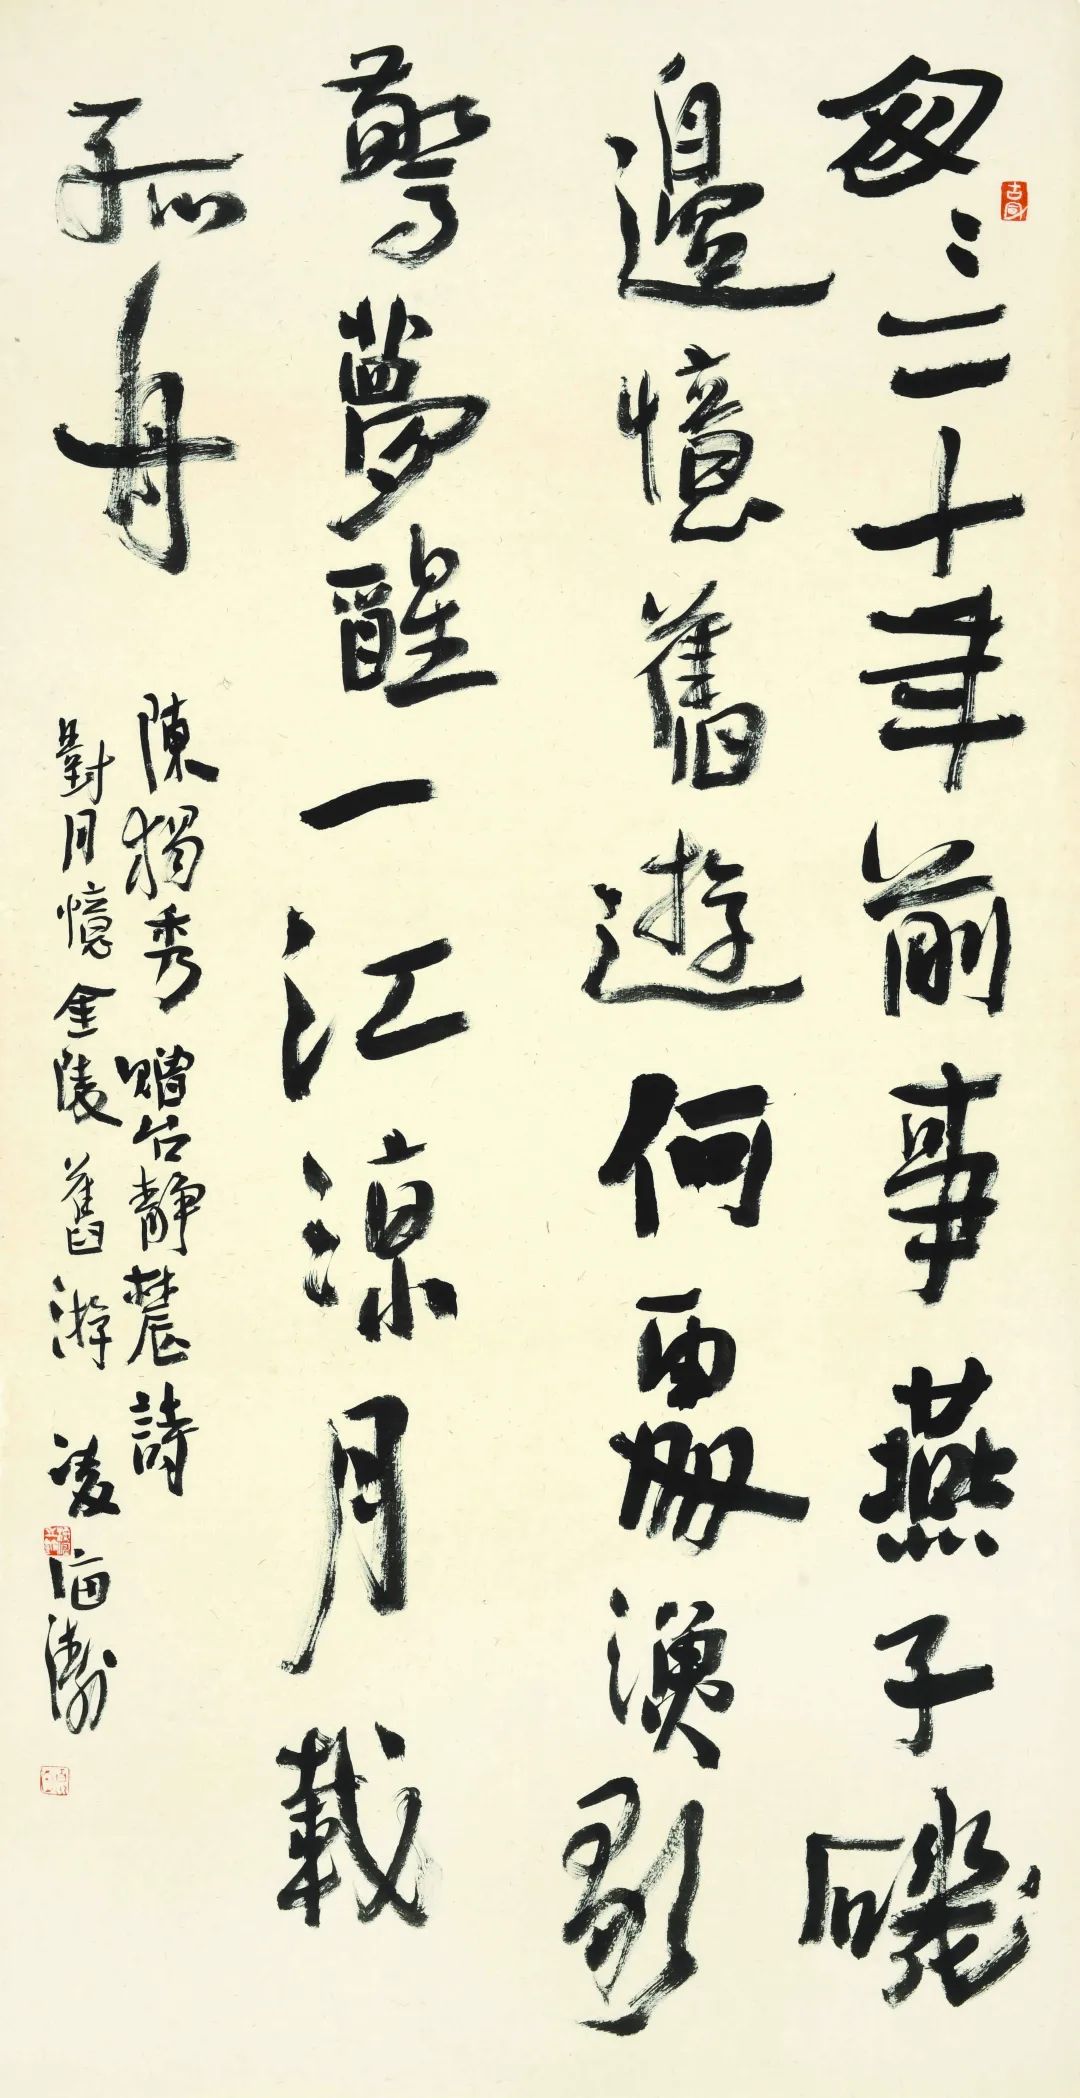 匆〻二十年前事燕子磯
邊憶舊遊何處漁歌
驚夢醒一江涼月載
孤舟
陳獨秀贈台靜農詩
對月憶金陵舊游 凌海濤